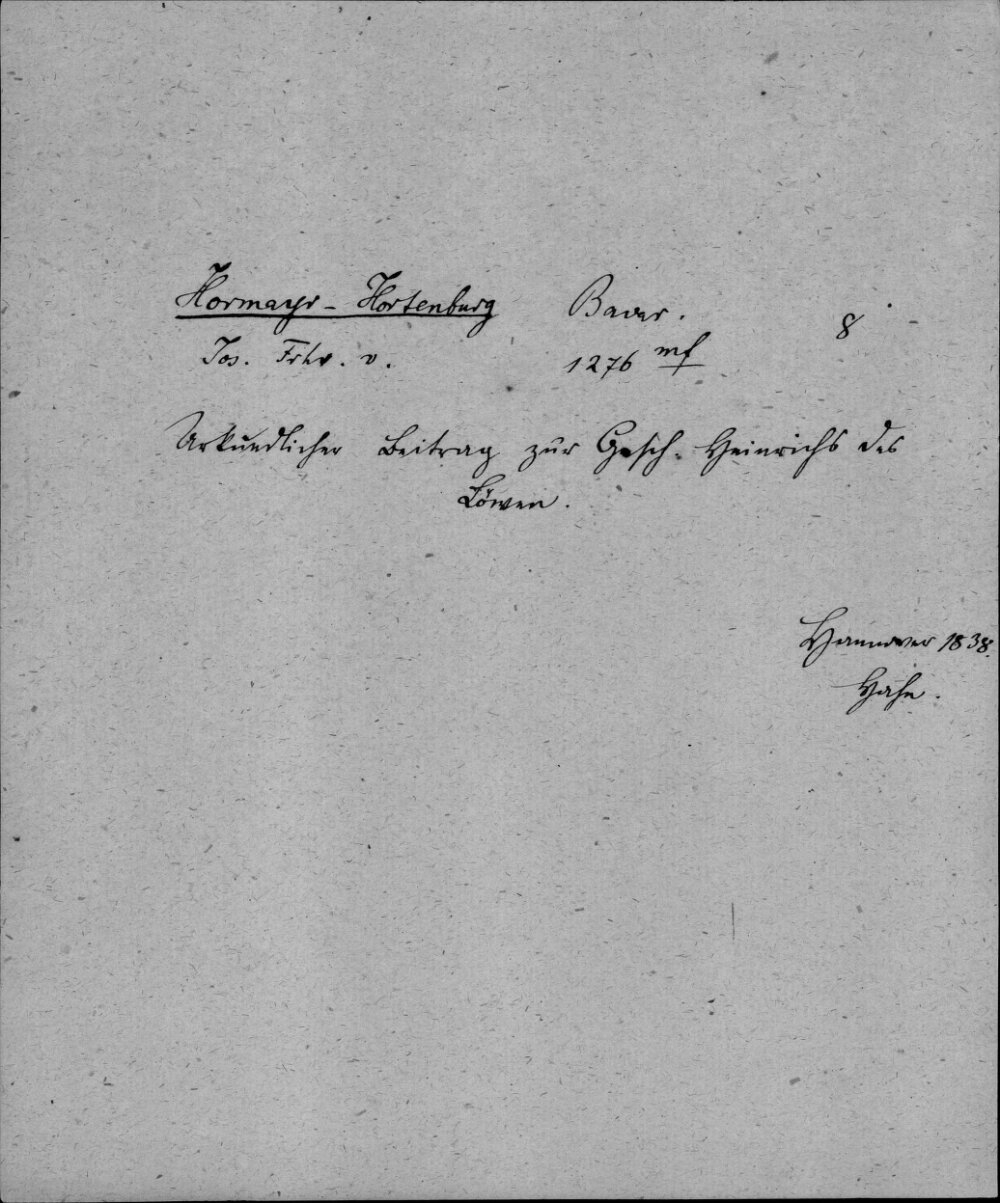 Hormayr-Hortenburg Bavar. 8
Jos. Frhr. v. 1276 mf
Urkundlicher Beitrag zur Gesch. Heinrichs des
Löwen.
Hannover 1838.
Hahn.